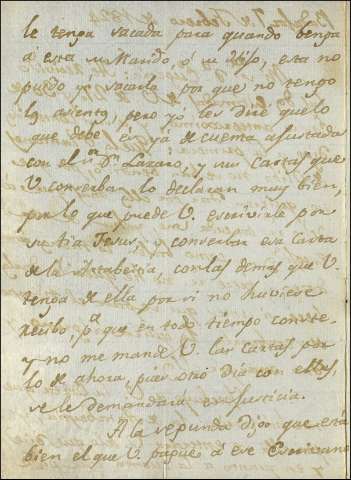 le tenga sacada para quando benga
á esta su Marido, ó su hijo, esta no
puedo yó sacarla por que no tengo
los asientos, pero yó les diré que lo
que debe es yá de cuenta ajustada
con el Sr. Dn. Lazaro, y sus Cartas que
V. conserba lo declaran muy bien,
por lo que puede V. escrivirle por
su tia Jesus, y conserbar esa Carta
de la Astabeisia, con las demas que V.
tenga de ella por si no huviere
recibo, pa. que en todo tiempo conste.
Y no me mande V. las cartas por
lo de ahora, pues otro Dia con ellas,
se le demandara en Justicia.
A la segunda digo que está
bien el que V. pague á ese Escrivano